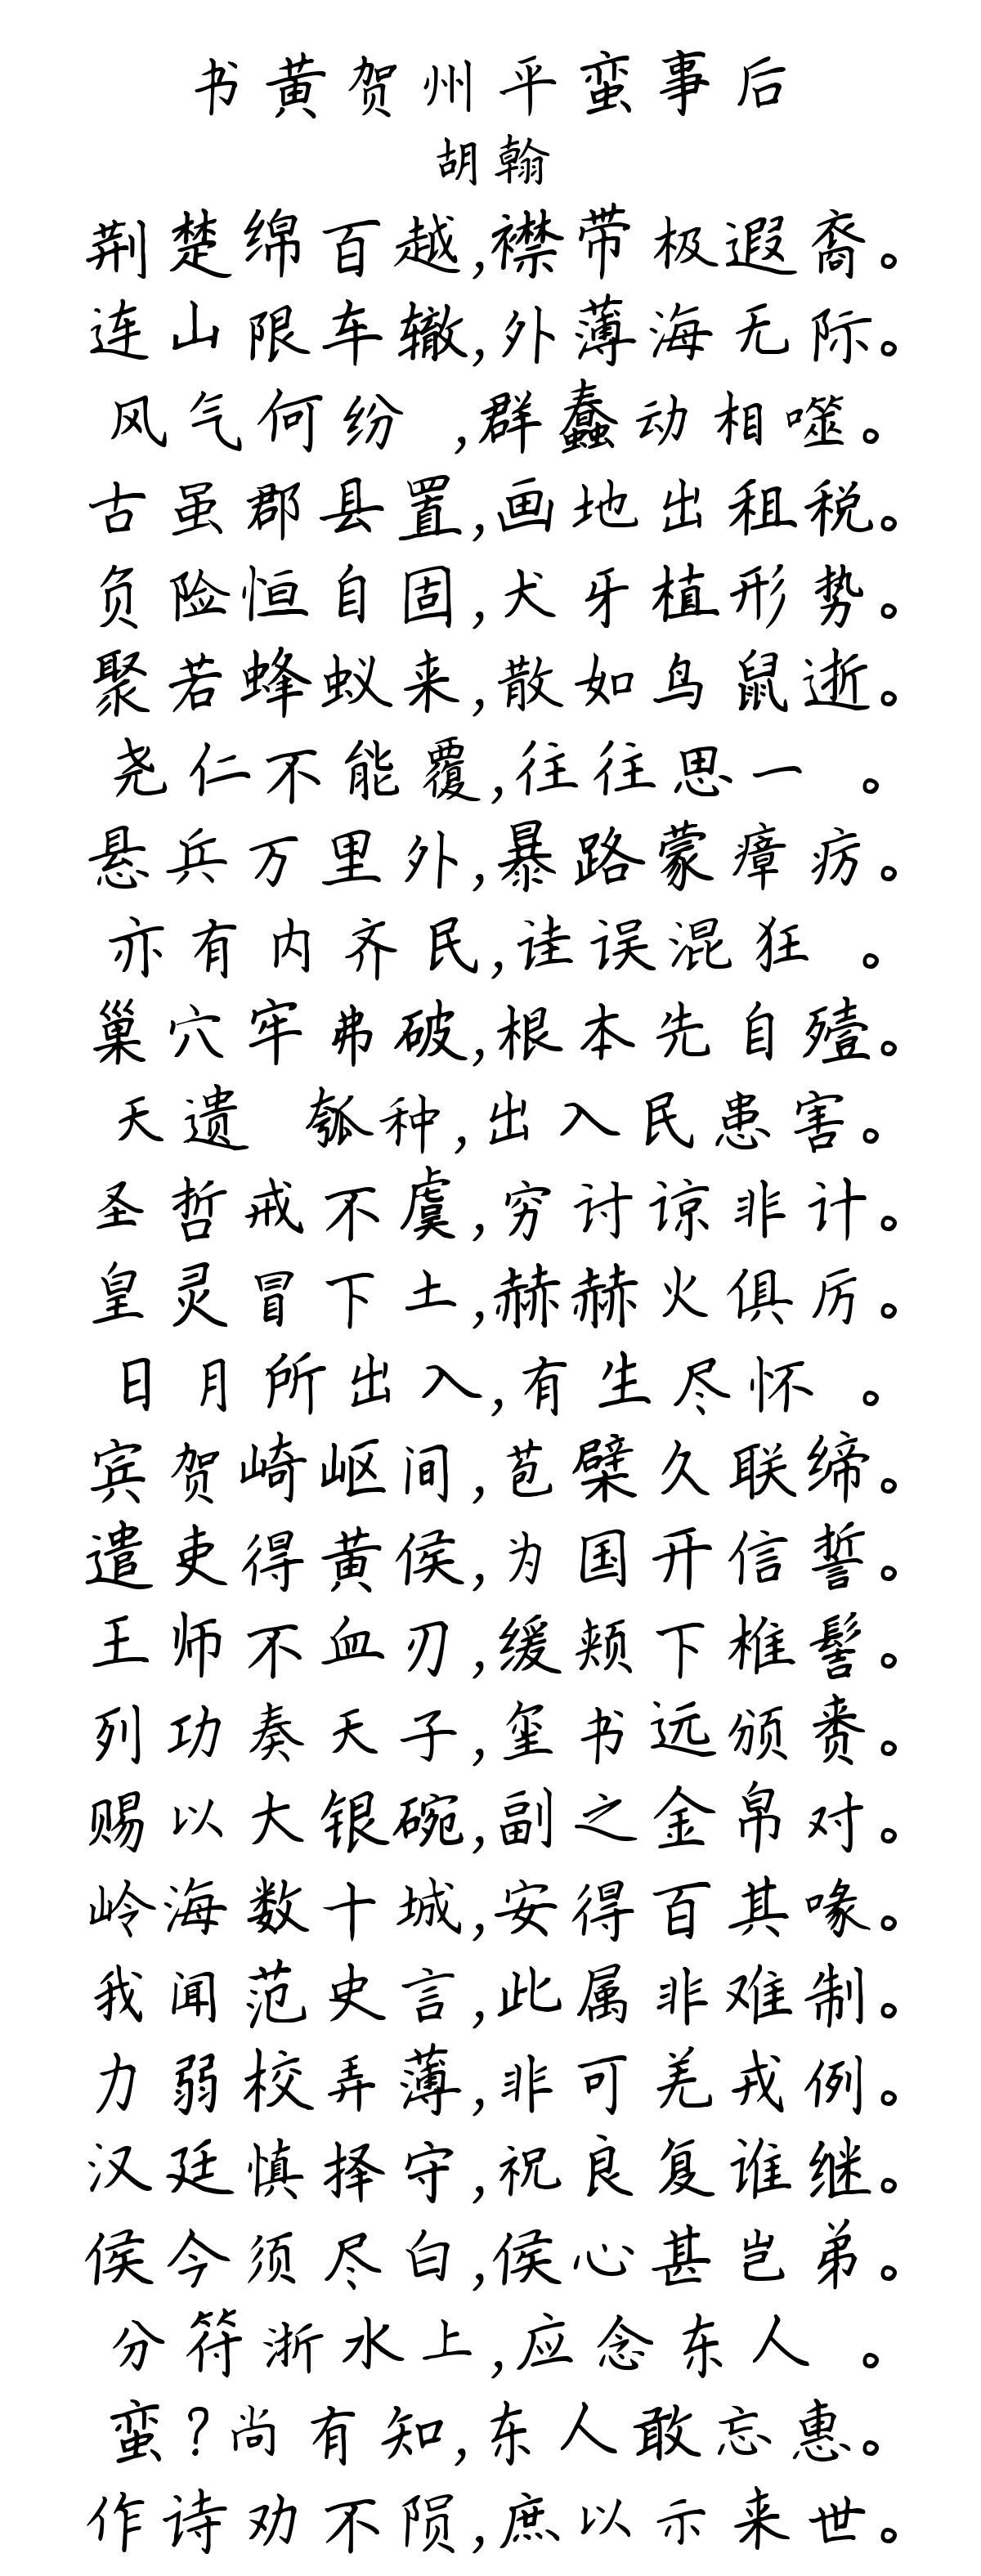 书黄贺州平蛮事后
胡翰
荆楚绵百越,襟带极遐裔。
连山限车辙,外薄海无际。
风气何纷 ,群蠢动相噬。
古虽郡县置,画地出租税。
负险恒自固,犬牙植形势。
聚若蜂蚁来,散如鸟鼠逝。
尧仁不能覆,往往思一 。
悬兵万里外,暴路蒙瘴疠。
亦有内齐民,诖误混狂 。
巢穴牢弗破,根本先自殪。
天遗 瓠种,出入民患害。
圣哲戒不虞,穷讨谅非计。
皇灵冒下土,赫赫火俱厉。
日月所出入,有生尽怀 。
宾贺崎岖间,苞檗久联缔。
遣吏得黄侯,为国开信誓。
王师不血刃,缓颊下椎髻。
列功奏天子,玺书远颁赉。
赐以大银碗,副之金帛对。
岭海数十城,安得百其喙。
我闻范史言,此属非难制。
力弱校弄薄,非可羌戎例。
汉廷慎择守,祝良复谁继。
侯今须尽白,侯心甚岂弟。
分符浙水上,应念东人 。
蛮?尚有知,东人敢忘惠。
作诗劝不陨,庶以示来世。